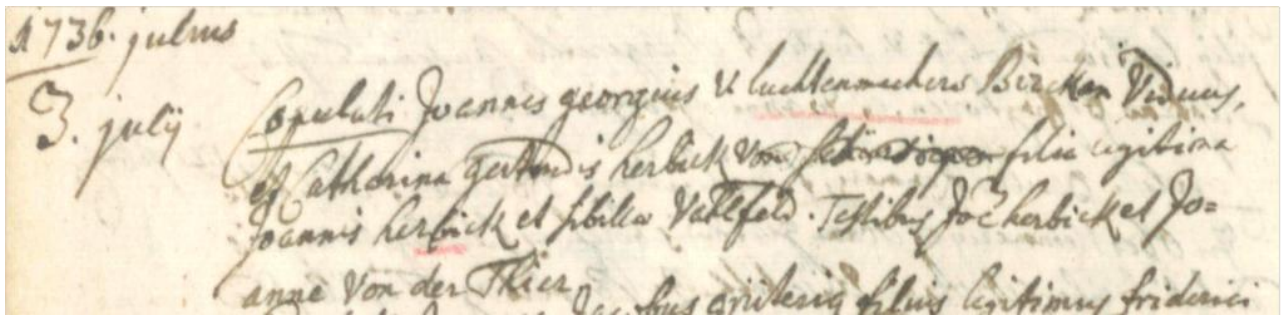 1736. julius
3. julij
Copulati Joannes georgius V luchtenmachers Bircken Viduus,
et Catharina gertrudis herbick von filia legitima
Joannis herbick et sibilla Vahlfeld. Testibus Joe herbick et Jo=
anne Von der Thier
filius legitimus friderici